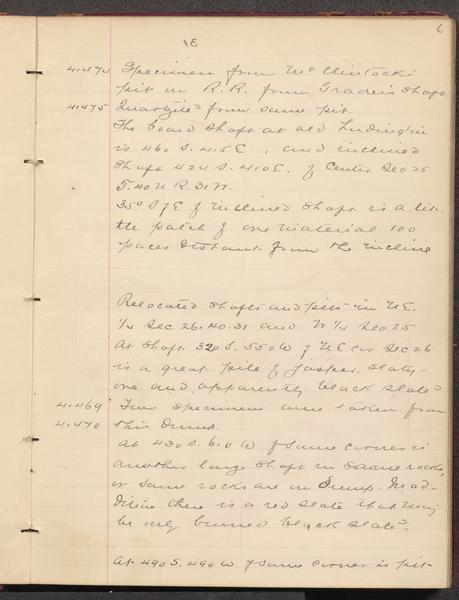 6
18
41474 Specimen from McClintock's
pit in R.R. from Grade's shaft
41475 Quartzite from same pit.
The board shaft at old Ludington
is 460 S. 415 E, and inclined
shaft 424 S. 410 E. of Center Sec 25
T. 40 N R. 31 W.
35° S of E of inclined shaft is a lit-
tle patch of ore material 100
paces distant from the incline
Relocated shafts and pits in N.E.
1/4 Sec 26.40.31 and W 1/4 Sec 25
At shaft 320 S. 550 W of NE cor Sec 26
is a great pile of jasper, slaty
ore and apparently black slate
41469 Two specimens were taken from
41470 this dump.
At 430 S. 610 W of same corner is
another large shaft in same rocks,
or same rocks are in dump. In ad-
dition there is a red slate that may
be only burned black slate.
At 490 S. 490 W of same corner is pit